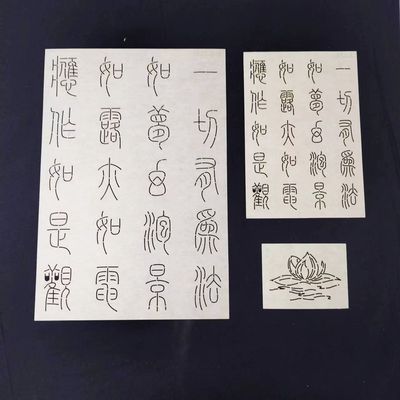 一切有為法
如夢幻泡景
如露亦如電
應作如是觀
一切有為法
如夢幻泡景
如露亦如電
應作如是觀